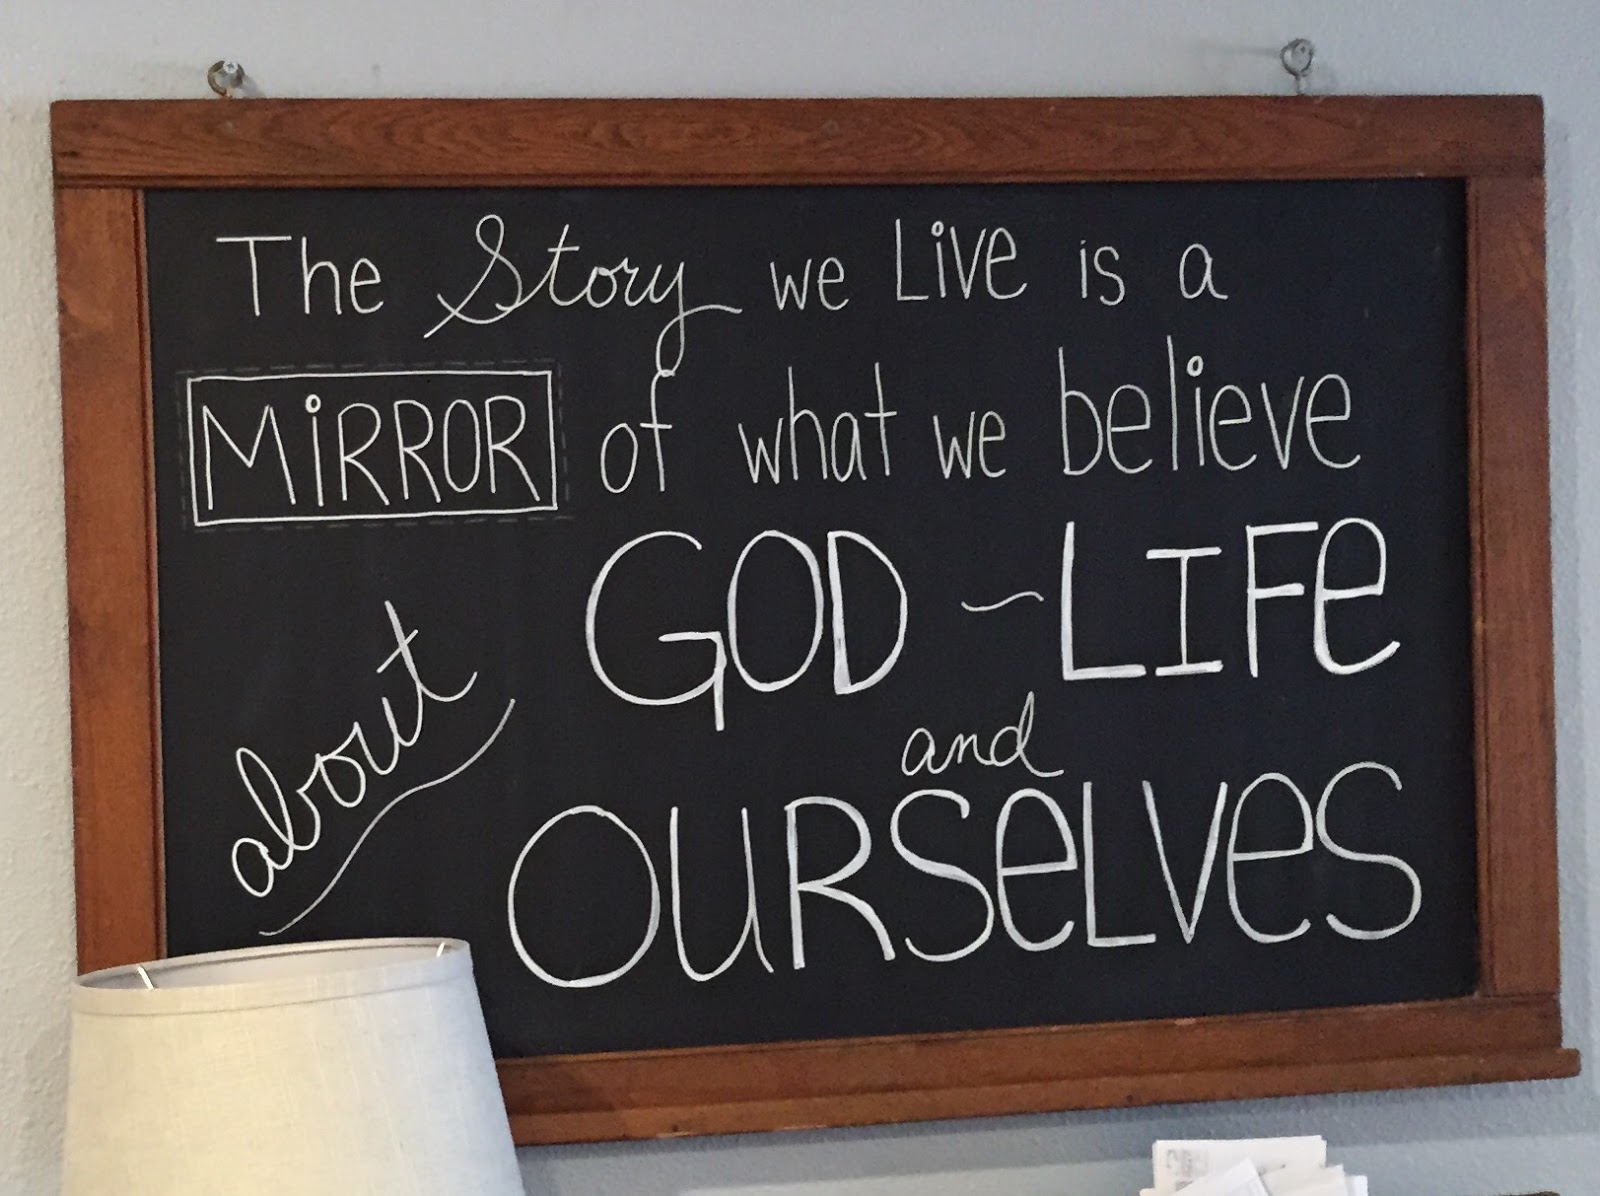 The Story we Live is a
MiRROR of what we believe
about GOD ~ LIFe
and
OURSeLVeS